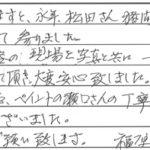 ますと、永年 松田さん
て 参りました。
現場と写真と共に 一
て頂き、大変安心致しました。
ペイントの瀬口さんの丁寧
ございました。
願い致します。